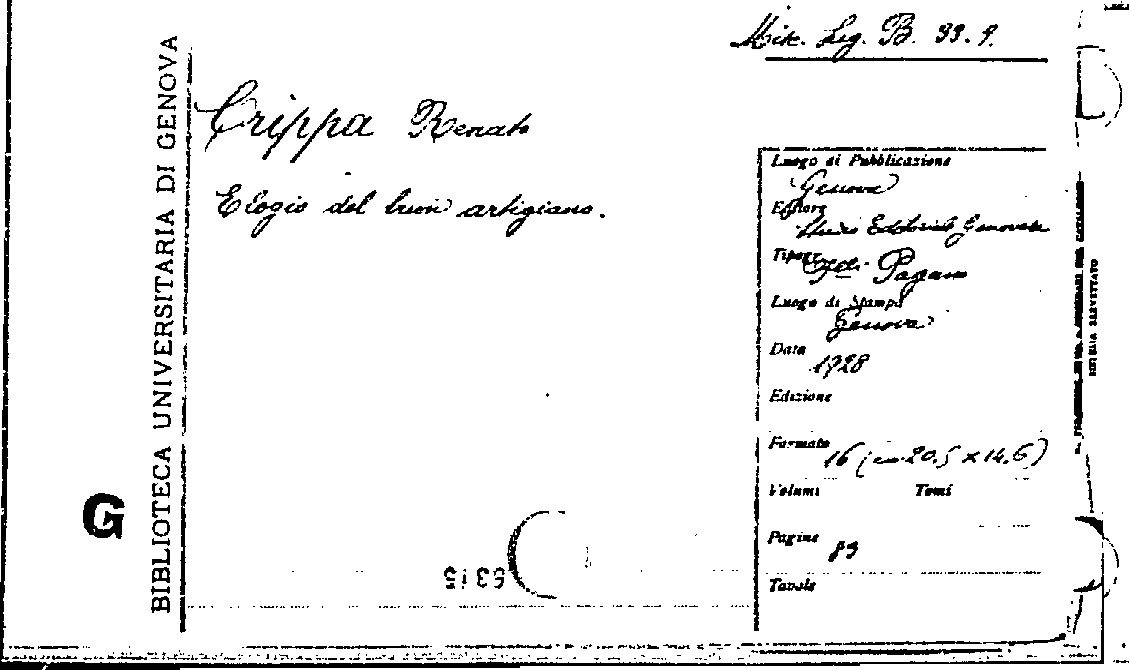 Misc. Leg. B. 33. 9.
BIBLIOTECA UNIVERSITARIA DI GENOVA
Crippa Renato
Elogio del buon artigiano.
Luogo di Pubblicazione
Genova
Editore
Studio Editoriale Genovese
Tipogr.
Pagano
Luogo di Stampa
Genova
Data
1928
Edizione
Formato
16 (cm 20,5 x 14,6)
Volumi Tomi
G
Pagine
89
Tavole